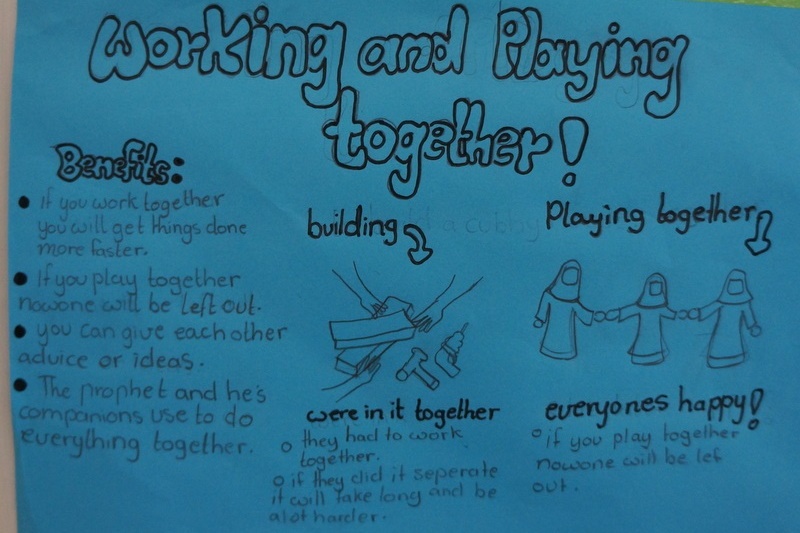 Working and Playing
together!
Benefits:
If you work together
you will get things done
more faster.
If you play together
nowone will be left out.
you can give each other
advice or ideas.
The prophet and he's
companions use to do
everything together.
building
were in it together
they had to work
together.
if they did it seperate
it will take long and be
alot harder.
Playing together
everyones happy!
if you play together
nowone will be lef
out.